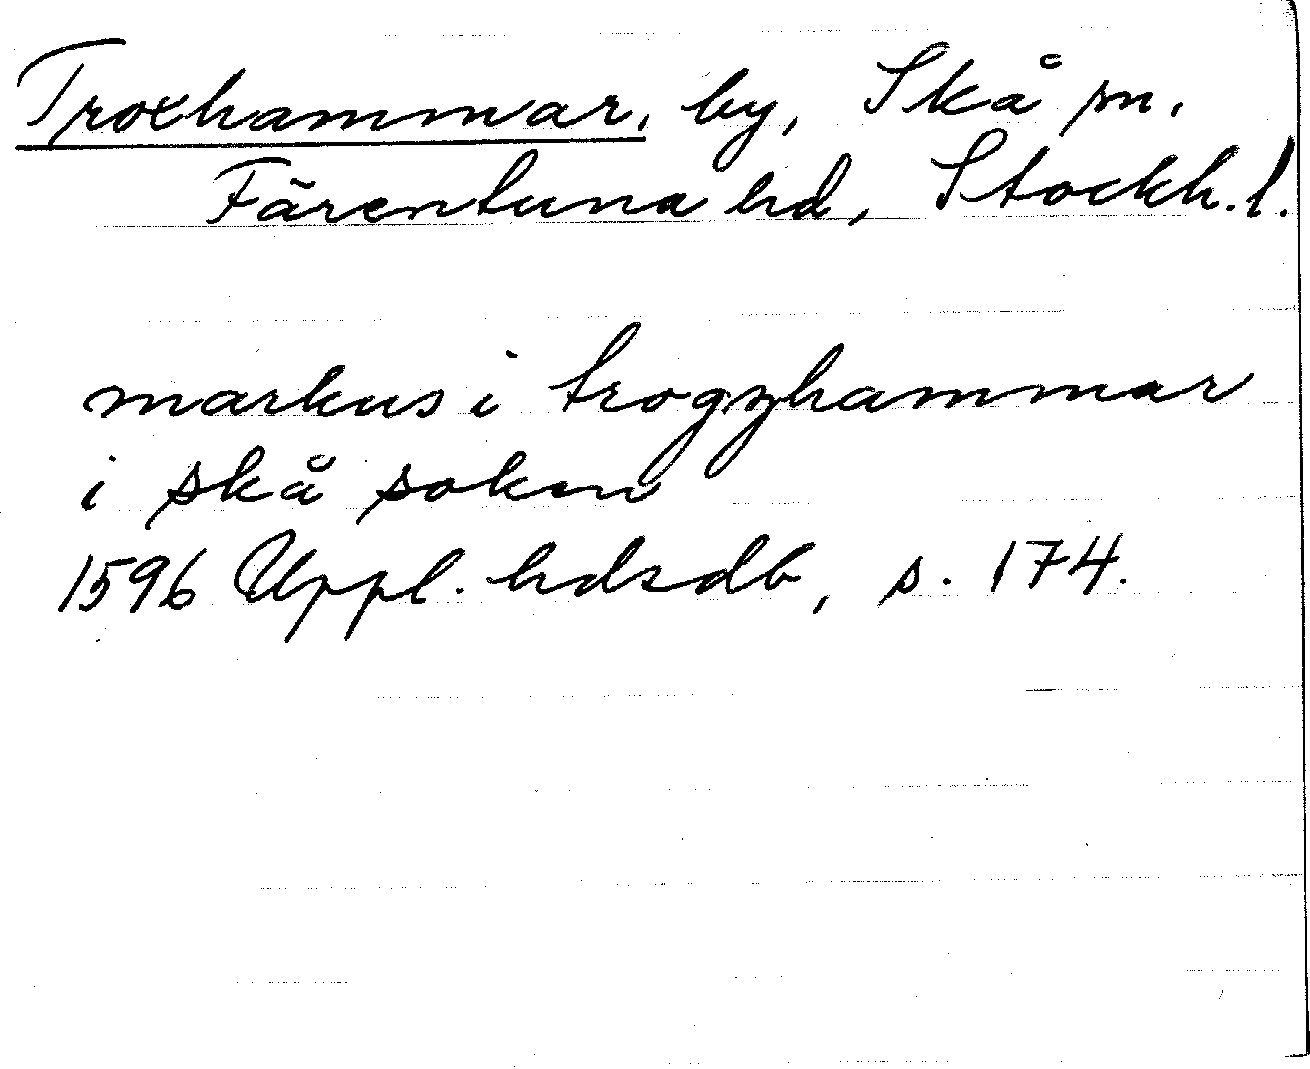 Troxhammar, by, Skå sn.
Färentuna hd, Stockh. l.
markus i trogzhammar
i skå soken
1596 Uppl. hdsdb, s. 174.